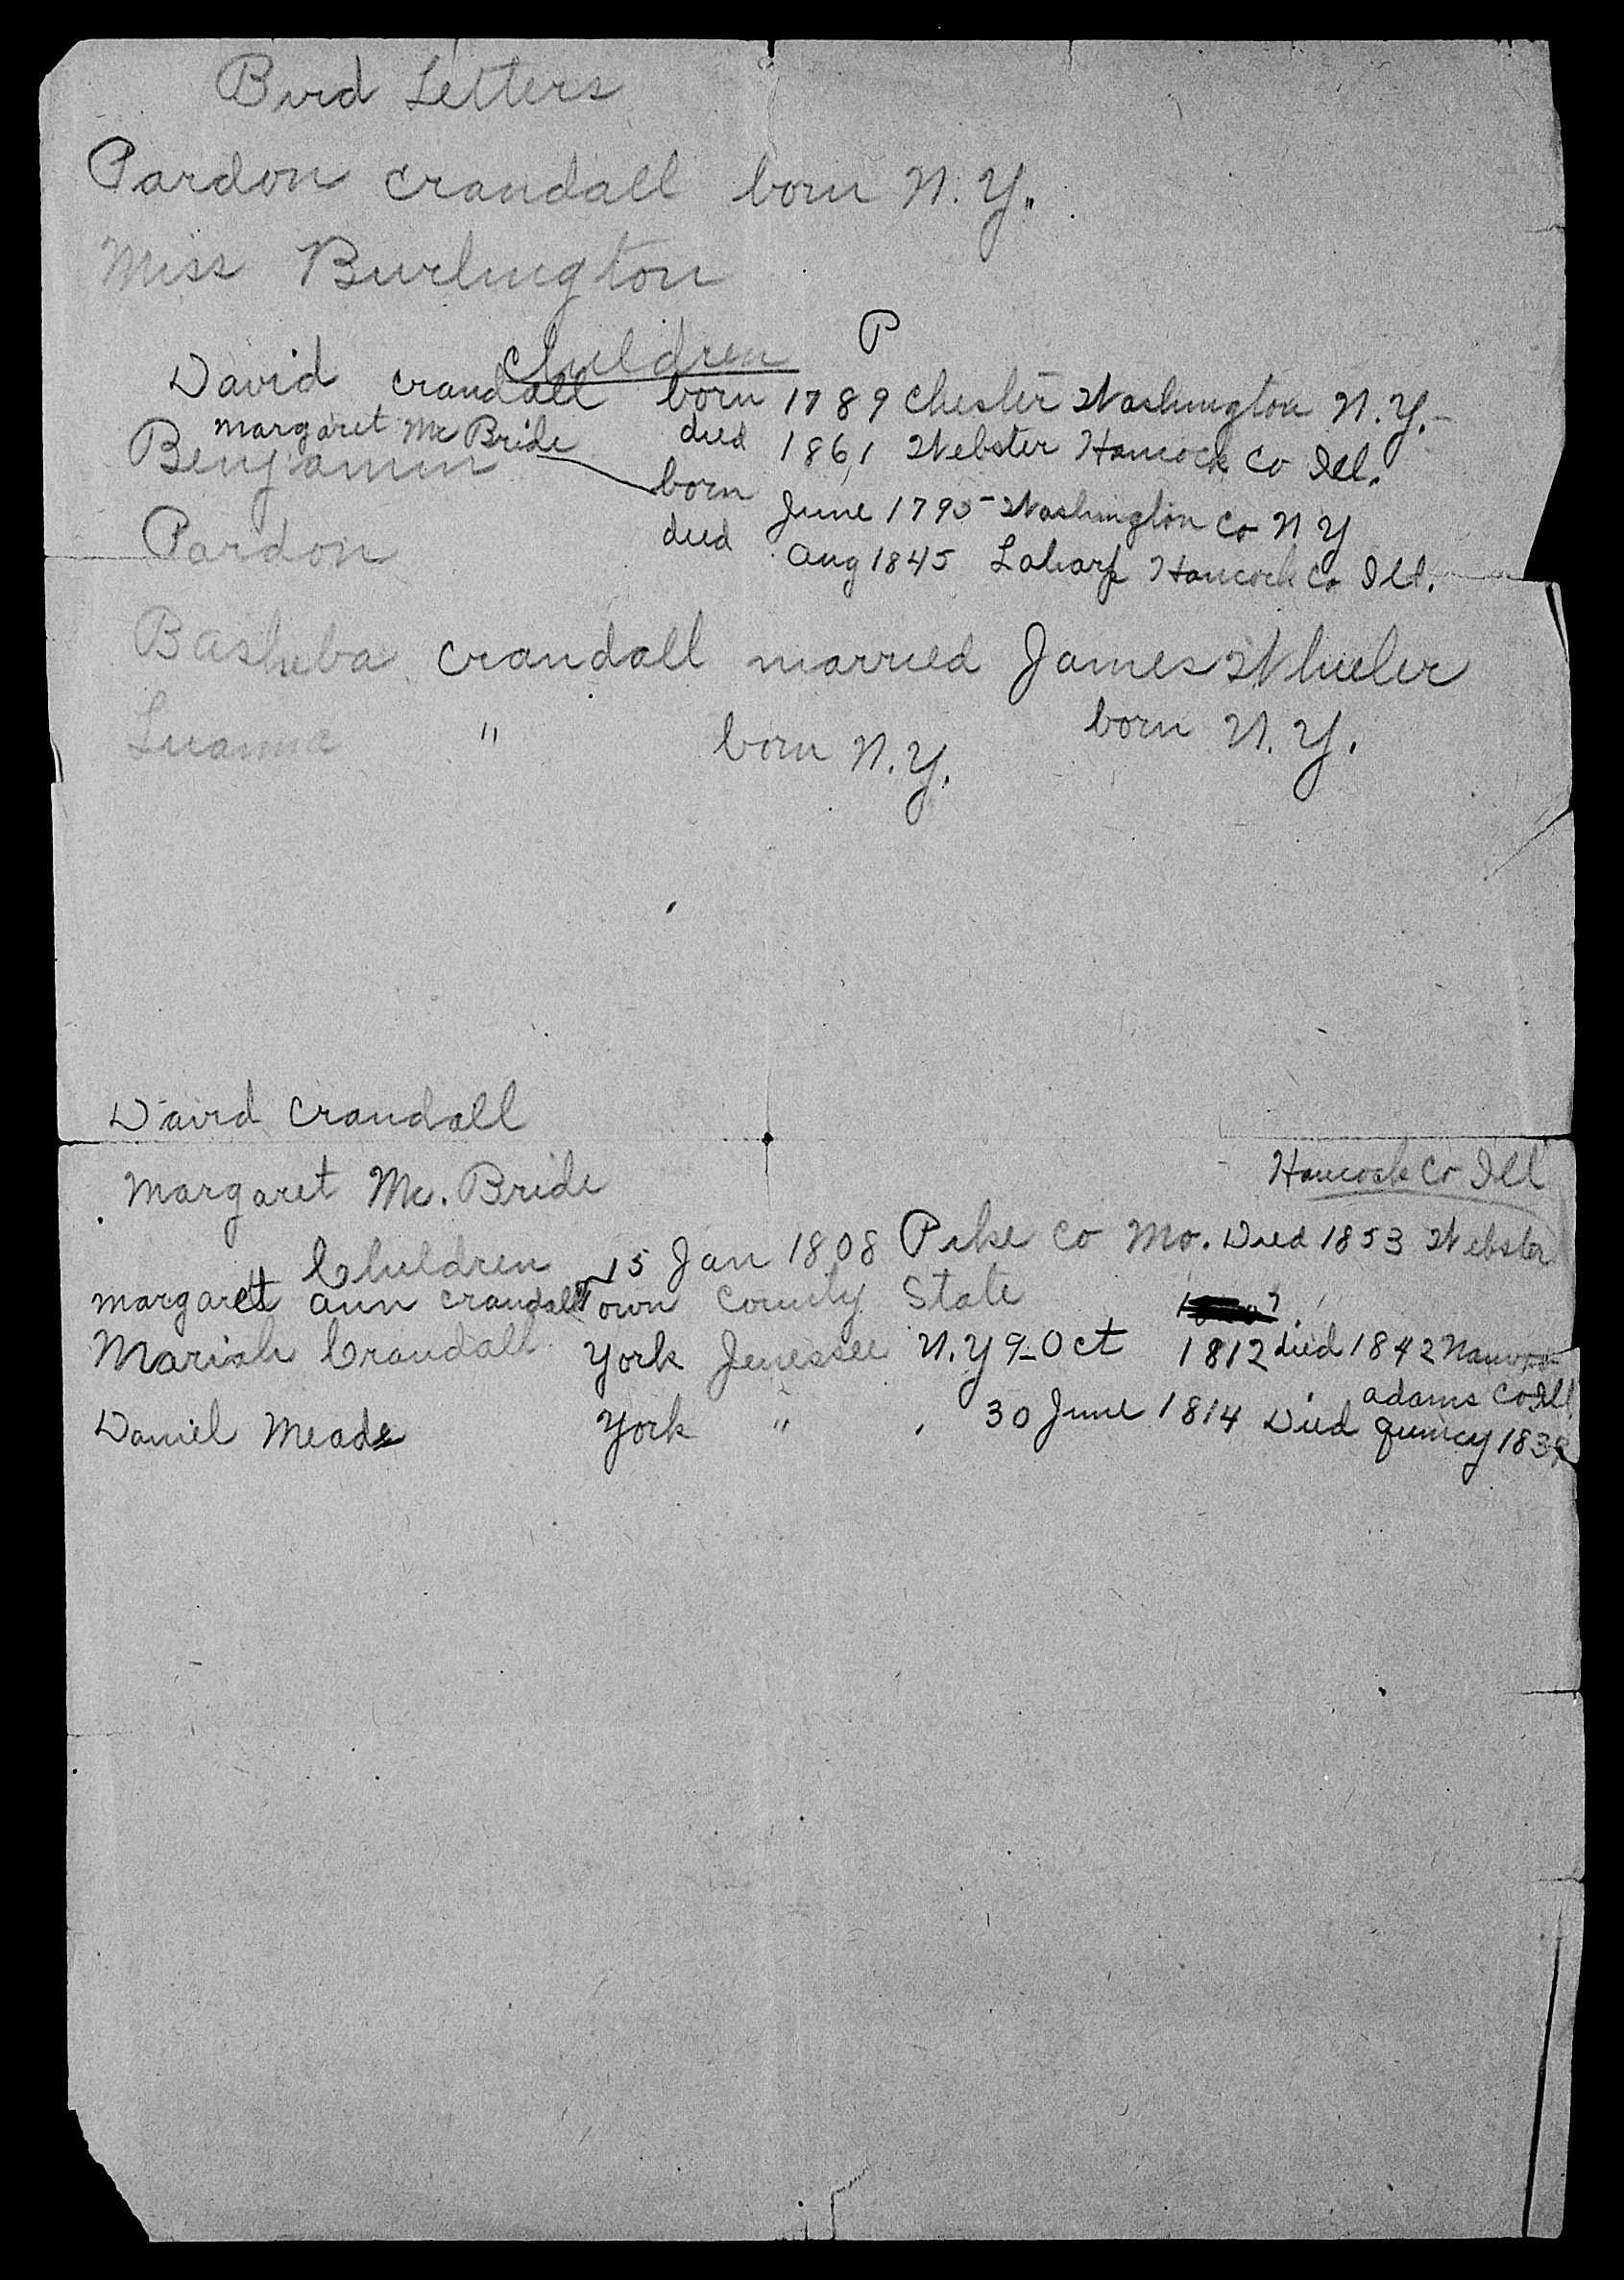 Bird Letters
Pardon Crandall born N.Y.
Miss Burlington
Children P
David Crandall born 1789 Chester Washington N.Y.
Margaret Mc Bride died 1861 Webster Hancock Co Ill.
Benjamin born June 1795 Washington Co N Y
Pardon died Aug 1845 Laharp Hancock Co Ill.
Basheba Crandall married James Wheeler
" born N.Y. born N.Y.
David Crandall
Margaret Mc. Bride Hancock Co Ill
Children 15 Jan 1808 Pike Co Mo. Died 1853 Webster
Margaret Ann Crandall Town County State
Mariah Crandall York Jenessee N.Y 9-Oct 1812 died 1842 Nauvoo
Adams Co Ill
Daniel Meade York " 30 June 1814 Died Quincy 1839